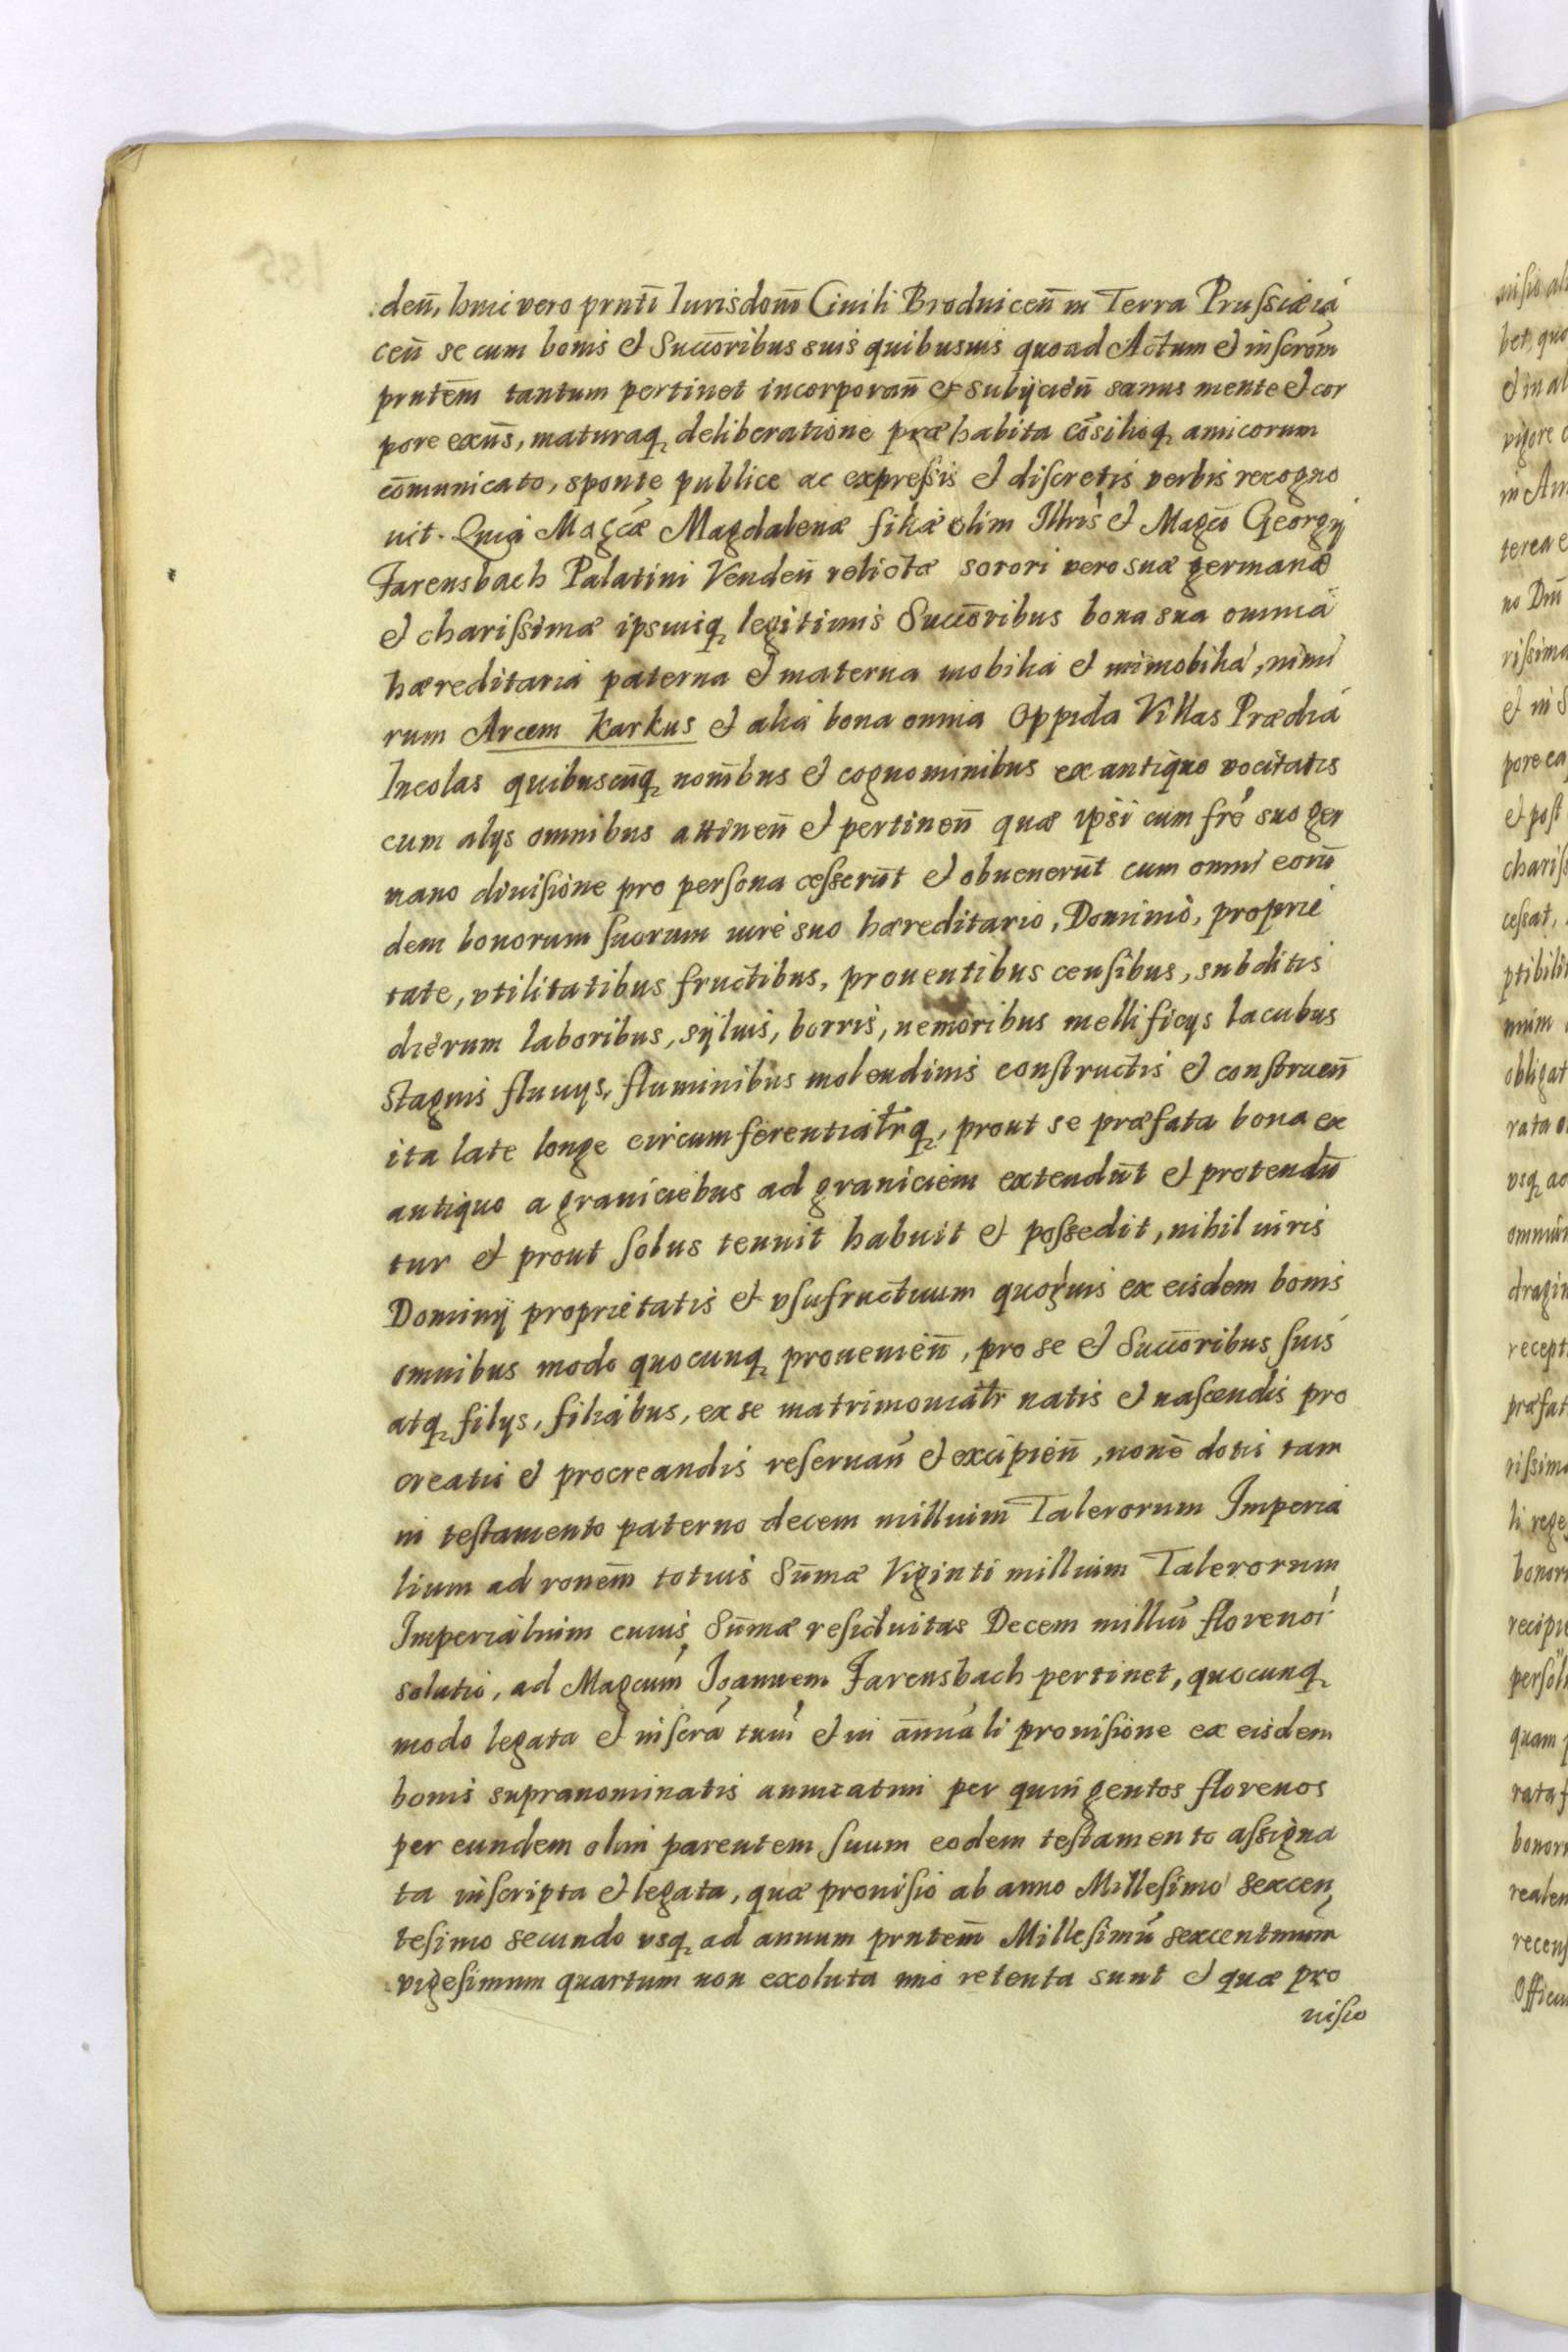 den̄, huic vero prntī Iurisdoni Ciuili Brodnicen̄ in Terra Prussiæ ia
cen̄ se cum bonis et Succoribus suis quibusuis quoad Actum et inscrom̄
prntem̄ tantum pertinet incorporan̄ et subijcien̄ sanus mente et cor
pore exn̄s, maturaq deliberatione præhabita cōsilioq amicorum
cōmunicato, sponte publice ac expressis et discretis verbis recogno
uit. Quia Magcæ Magdalenæ filiæ olim Illris et Magci Georgij
Farensbach Palatini Venden̄ relictæ sorori vero suæ germanæ
et charissimæ ipsiusq legitimis Succoribus bona sua omnia
hæreditaria paterna et materna mobilia et immobilia, nimi
rum Arcem Karkus et alia bona omnia Oppida Villas Prædia
Incolas quibuscūq nomībus et cognominibus ex antiquo vocitatis
cum alijs omnibus attinen̄ et pertinen̄ quæ ipsi cum fre suo ger
mano diuisione pro persona cesserūt et obuenerūt cum omni eorū
dem bonorum suorum iure suo hæreditario, Dominio, proprie
tate, vtilitatibus fructibus, prouentibus censibus, subditis
dierum laboribus, syluis, borris, nemoribus mellificijs lacubus
stagnis fluuijs, fluminibus molendinis constructis et construen̄
ita late longe circumferentialrq, prout se præfata bona ex
antiquo a graniciebus ad graniciem extendūt et protendū
tur et prout solus tenuit habuit et possedit, nihil iuris
Dominij proprietatis et vsufructuum quorūuis ex eisdem bonis
omnibus modo quocunq prouenien̄, pro se et Succoribus suis
atq filijs, filiabus, ex se matrimonialr natis et nascendis pro
creatis et procreandis reseruan̄ et excipien̄, noñe dotis tam
in testamento paterno decem millium Talerorum Imperia
lium ad ronem̄ totius Sum̄æ Viginti millium Talerorum
Imperialium cuius Sum̄æ residuitas Decem milliū florenor
solutio, ad Magcum Joannem Farensbach pertinet, quocunq
modo legata et inscra tum et in an̄uali prouisione ex eisdem
bonis supranominatis annuatim per quingentos florenos
per eundem olim parentem suum eodem testamento assigna
ta inscripta et legata, quæ prouisio ab anno Millesimo sexcen
tesimo secundo vsq ad annum prntem̄ Millesimū sexcentmum̄
vigesimum quartum non exoluta imo retenta sunt et quæ pro
uisio